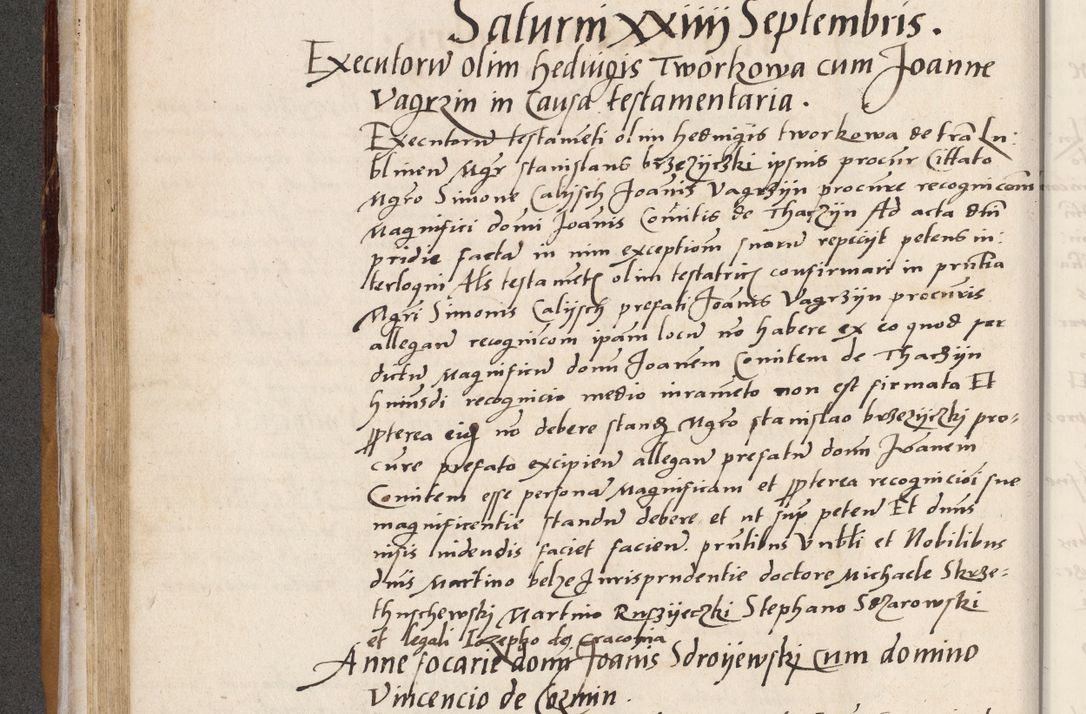 Saturni XXIIII Septembris.
Executorū olim Heduigis Tworkowa cum Joanne
Vagrzin in Causa testamentaria.
Executorū testamēti olim Heduigis tworkowa de frā Lu:
blinen Mgr Stanislaus brzezijczki ipsius procur Cittato
Mgro Simone Calijsch Joānis Vagrzijn procure recognicōm
Magnifici domi Joānis Comitis de Thaczijn Ad acta dni
pridie factā in vim exceptiom suarū repecijt petens in:
terlogni Als testamētū olim testatricis confirmari in prñtia
Mgri Simonis Calijsch prefati Joānis Vagrzijn procuris
allegan recognicom ipām locū nō habere ex eo quod per
dictū Magnificū domū Joanem Comitem de Thaczijn
huiusdi recognicio medio iuramēto non est firmata Et
ppterea eius nō debere stand Mgro Stanislao brzezijczki pro=
cure prefato excipien allegan prefatū domū Joānem
Comitem esse personā Magnificam et ppterea recognicioī sue
magnificentie standū debere et ut sup peten Et dnus
visis videndis faciet facien. prñtibus Vnbli et Nobilibus
dnis Martino belze Jurisprudentie doctore Michaele Skrze=
thuschewski Martino Ruszijeczki Stephano Szarowski
et legali Iozepho de Cracovia
Anne focarie domi Joānis Sdroijewski cum domino
Vincencio de Cozmin.